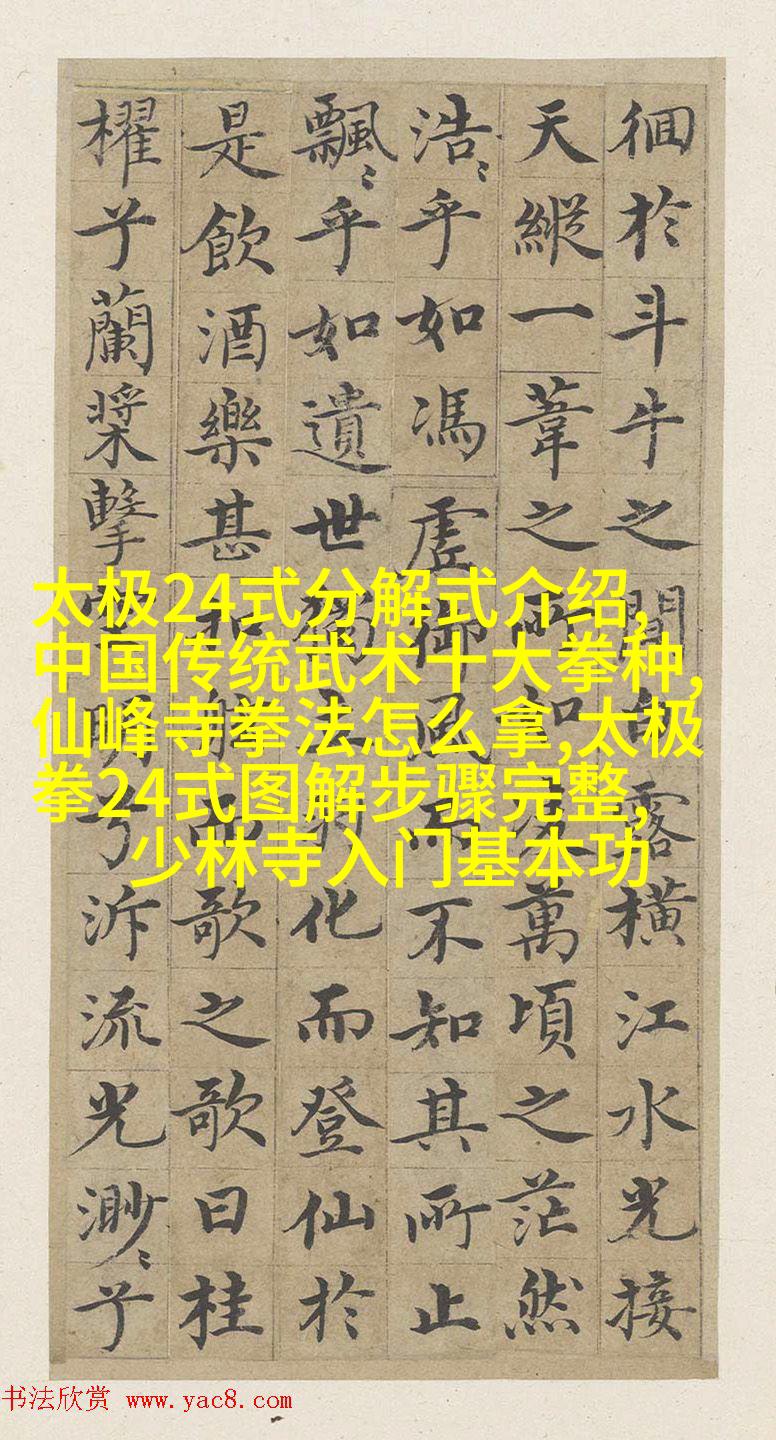 徊於斗牛之間白露橫江水光接
天縱一葦之所如凌萬頃之茫然
浩〻乎如馮虛御風而不知其所止
飄〻乎如遺世獨立羽化而登仙於
是飲酒樂甚扣舷而歌之歌曰桂
櫂兮蘭槳擊空明兮泝流光渺〻兮
太极24式分解式介绍,
中国传统武术十大拳种,
仙峰寺拳法怎么拿,太极
拳24式图解步骤完整,
少林寺入门基本功
书法欣赏 www.yac8.com